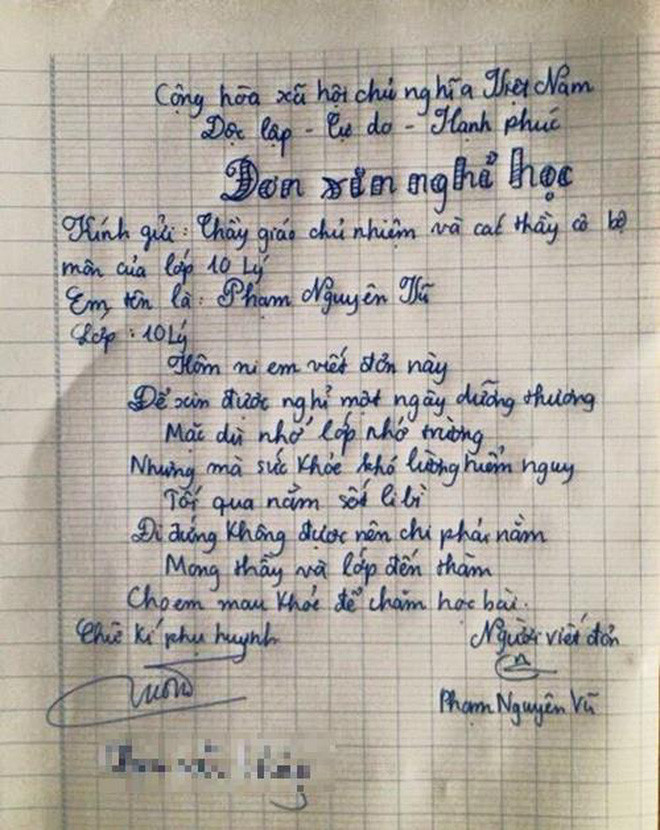 Cộng hòa xã hội chủ nghĩa Việt Nam
Độc lập - Tự do - Hạnh phúc
Đơn xin nghỉ học
Kính gửi: Thầy giáo chủ nhiệm và các thầy cô bộ
môn của lớp 10 Lý
Em tên là: Phạm Nguyên Vũ
Lớp : 10 Lý
Hôm ni em viết đơn này
Để xin được nghỉ một ngày dưỡng thương
Mặc dù nhớ lớp nhớ trường
Nhưng mà sức khỏe khó lường hiểm nguy
Tối qua nằm sốt li bì
Đi đứng không được nên chi phải nằm
Mong thầy và lớp đến thăm
Cho em mau khỏe để chăm học bài.
Chữ kí phụ huynh
Người viết đơn
Phạm Nguyên Vũ